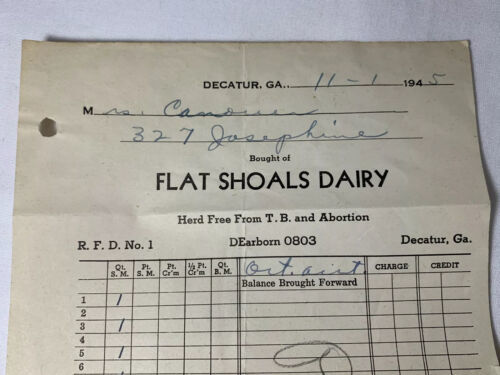 DECATUR, GA., 11-1 1945
Mrs.
327 Josephine
Bought of
FLAT SHOALS DAIRY
Herd Free From T. B. and Abortion
R. F. D. No. 1 DEarborn 0803 Decatur, Ga.
Qt. S. M. Pt. S. M. Pt. Cr'm ½ Pt. Cr'm Qt. B. M. Oct. acct. CHARGE CREDIT
Balance Brought Forward
1 1
2
3 1
4
5 1
6